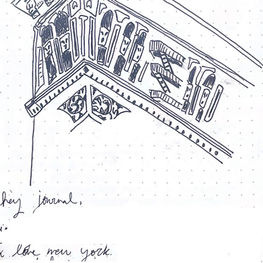 hey journal,
i.
I love new york.